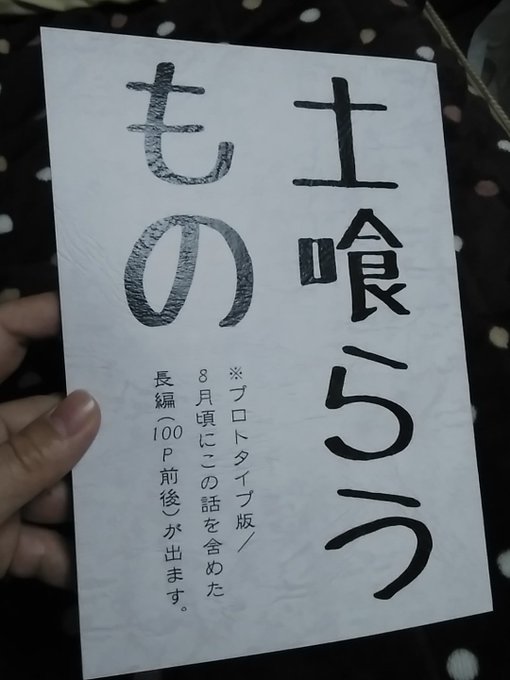 土喰らう
もの
※プロトタイプ版／
8月頃にこの話を含めた
長編(100P前後)が出ます。